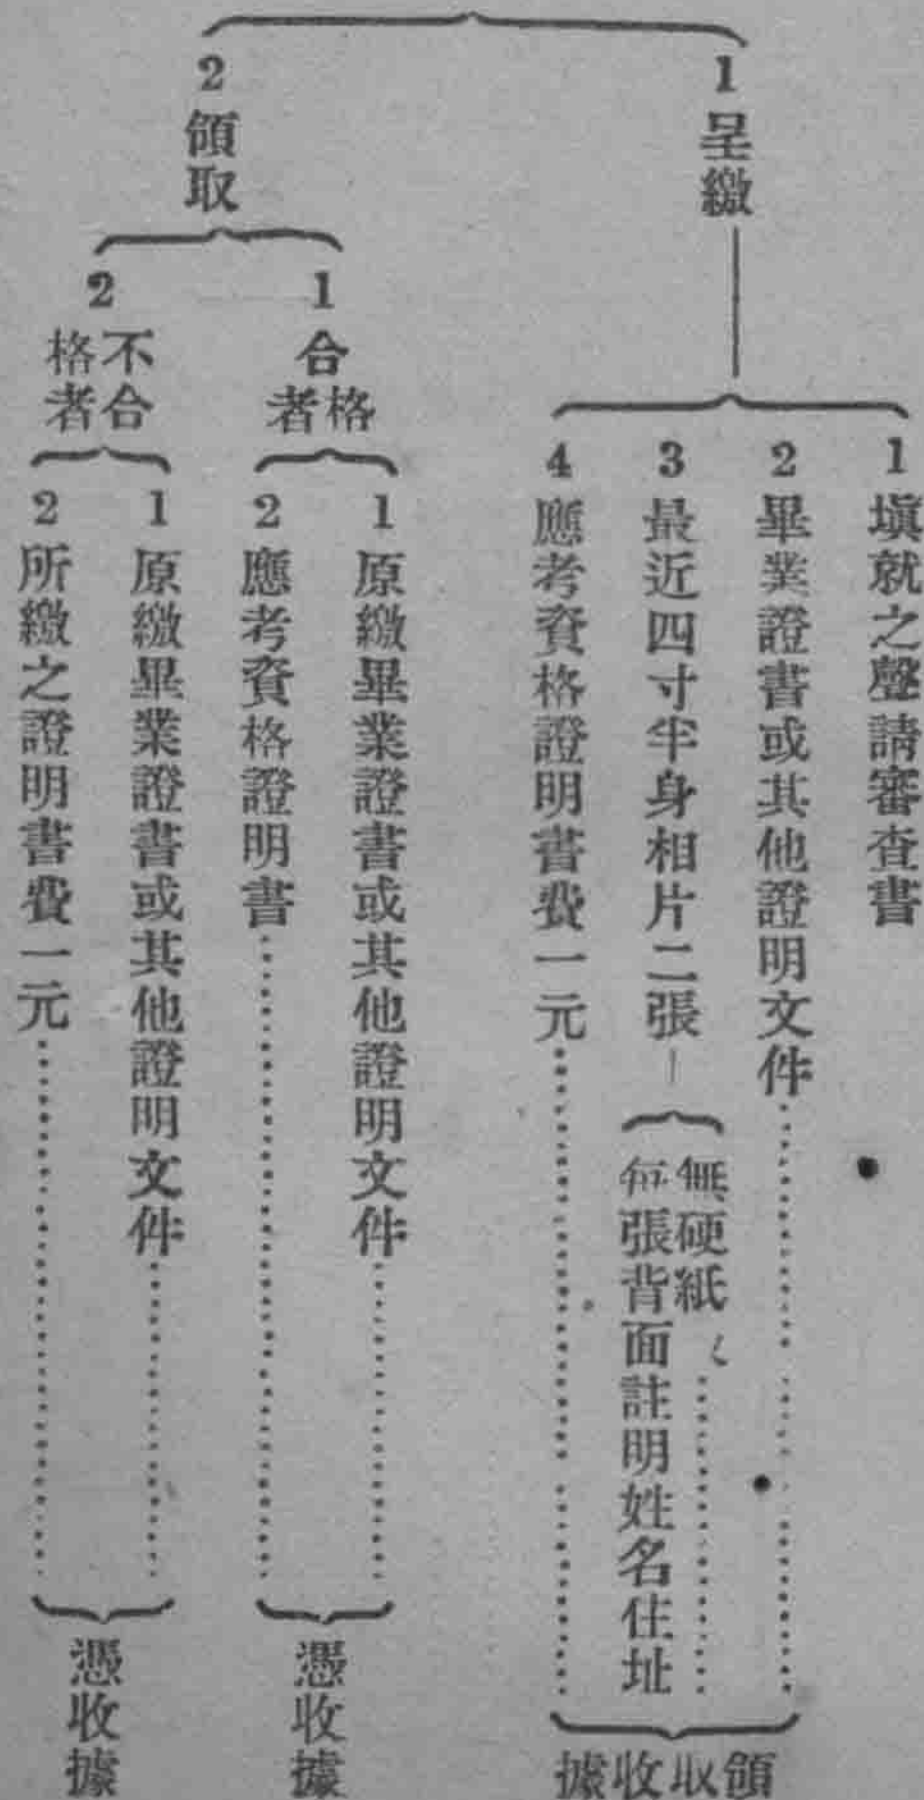 1 呈繳
1 填就之聲請審查書
2 畢業證書或其他證明文件
3 最近四寸半身相片二張
無硬紙
每張背面註明姓名住址
4 應考資格證明書費一元
領取收據
2 領取
1 合格者
1 原繳畢業證書或其他證明文件
2 應考資格證明書
憑收據
2 不合格者
1 原繳畢業證書或其他證明文件
2 所繳之證明書費一元
憑收據